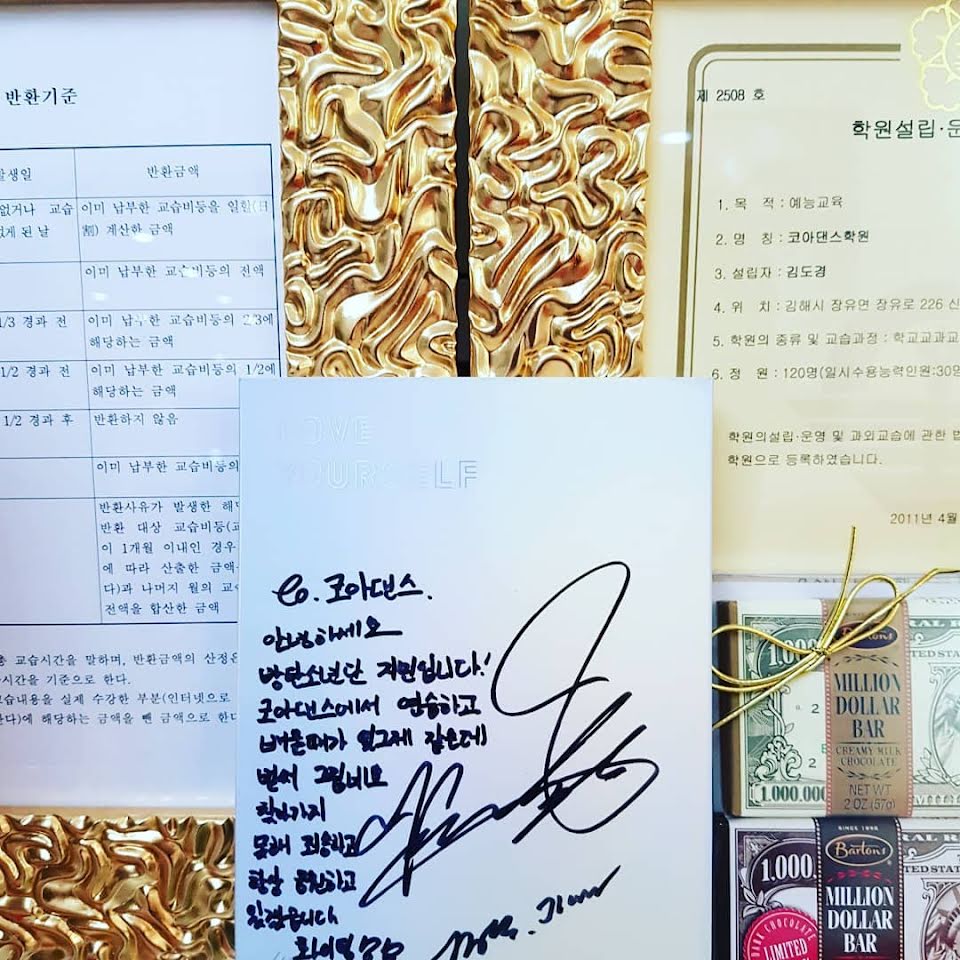 반환기준
발생일 반환금액
없거나 교습 이미 납부한 교습비등을 일할(日
없게 된 날 割) 계산한 금액
이미 납부한 교습비등의 전액
1/3 경과 전 이미 납부한 교습비등의 2/3에
해당하는 금액
1/2 경과 전 이미 납부한 교습비등의 1/2에
해당하는 금액
1/2 경과 후 반환하지 않음
이미 납부한 교습비등의
반환사유가 발생한 해
반환 대상 교습비등(교
이 1개월 이내인 경우
에 따라 산출한 금액
다)과 나머지 월의 교
전액을 합산한 금액
교습시간을 말하며, 반환금액의 산정은
시간을 기준으로 한다.
습내용을 실제 수강한 부분(인터넷으로
한다)에 해당하는 금액을 뺀 금액으로 한다
제 2508 호
학원설립·운
1. 목 적 : 예능교육
2. 명 칭 : 코아댄스학원
3. 설립자 : 김도경
4. 위 치 : 김해시 장유면 장유로 226 신
5. 학원의 종류 및 교습과정 : 학교교과교
6. 정 원 : 120명(일시수용능력인원:30명
학원의설립·운영 및 과외교습에 관한 법
학원으로 등록하였습니다.
2011년 4월
LOVE
YOURSELF
to. 코아댄스.
안녕하세요
방탄소년단 지민입니다!
코아댄스에서 연습하고
배운때가 엊그제 같은데
벌써 그립네요
찾아가지
못해 죄송하고
항상 응원하고
있겠습니다
화이팅
Bartons
MILLION
DOLLAR
BAR
CREAMY MILK
CHOCOLATE
NET WT
2 OZ (57g)
1.000.000
SINCE 1938
Bartons
1.000.
MILLION
DOLLAR
BAR
DARK CHOCOLATE
LIMITED